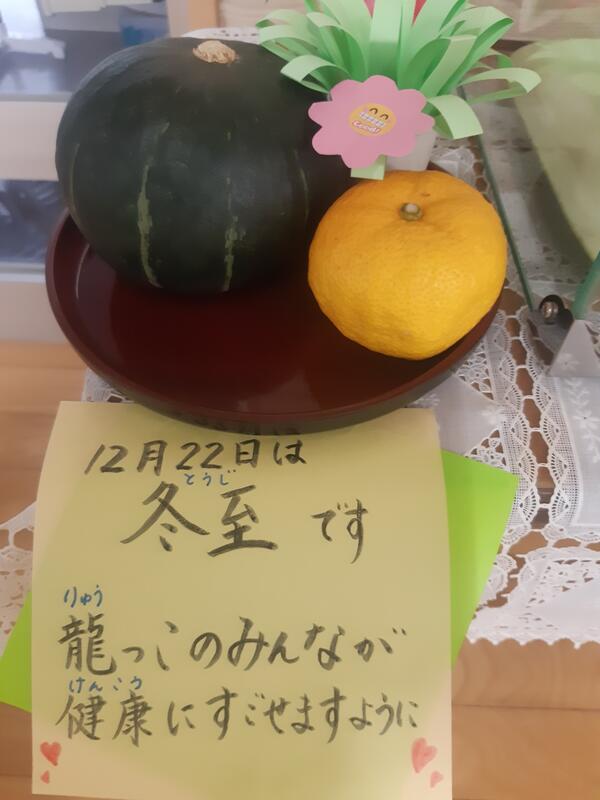 Good!
12月22日は
とうじ
冬至です
りゅう
龍っこのみんなが
けんこう
健康にすごせますように